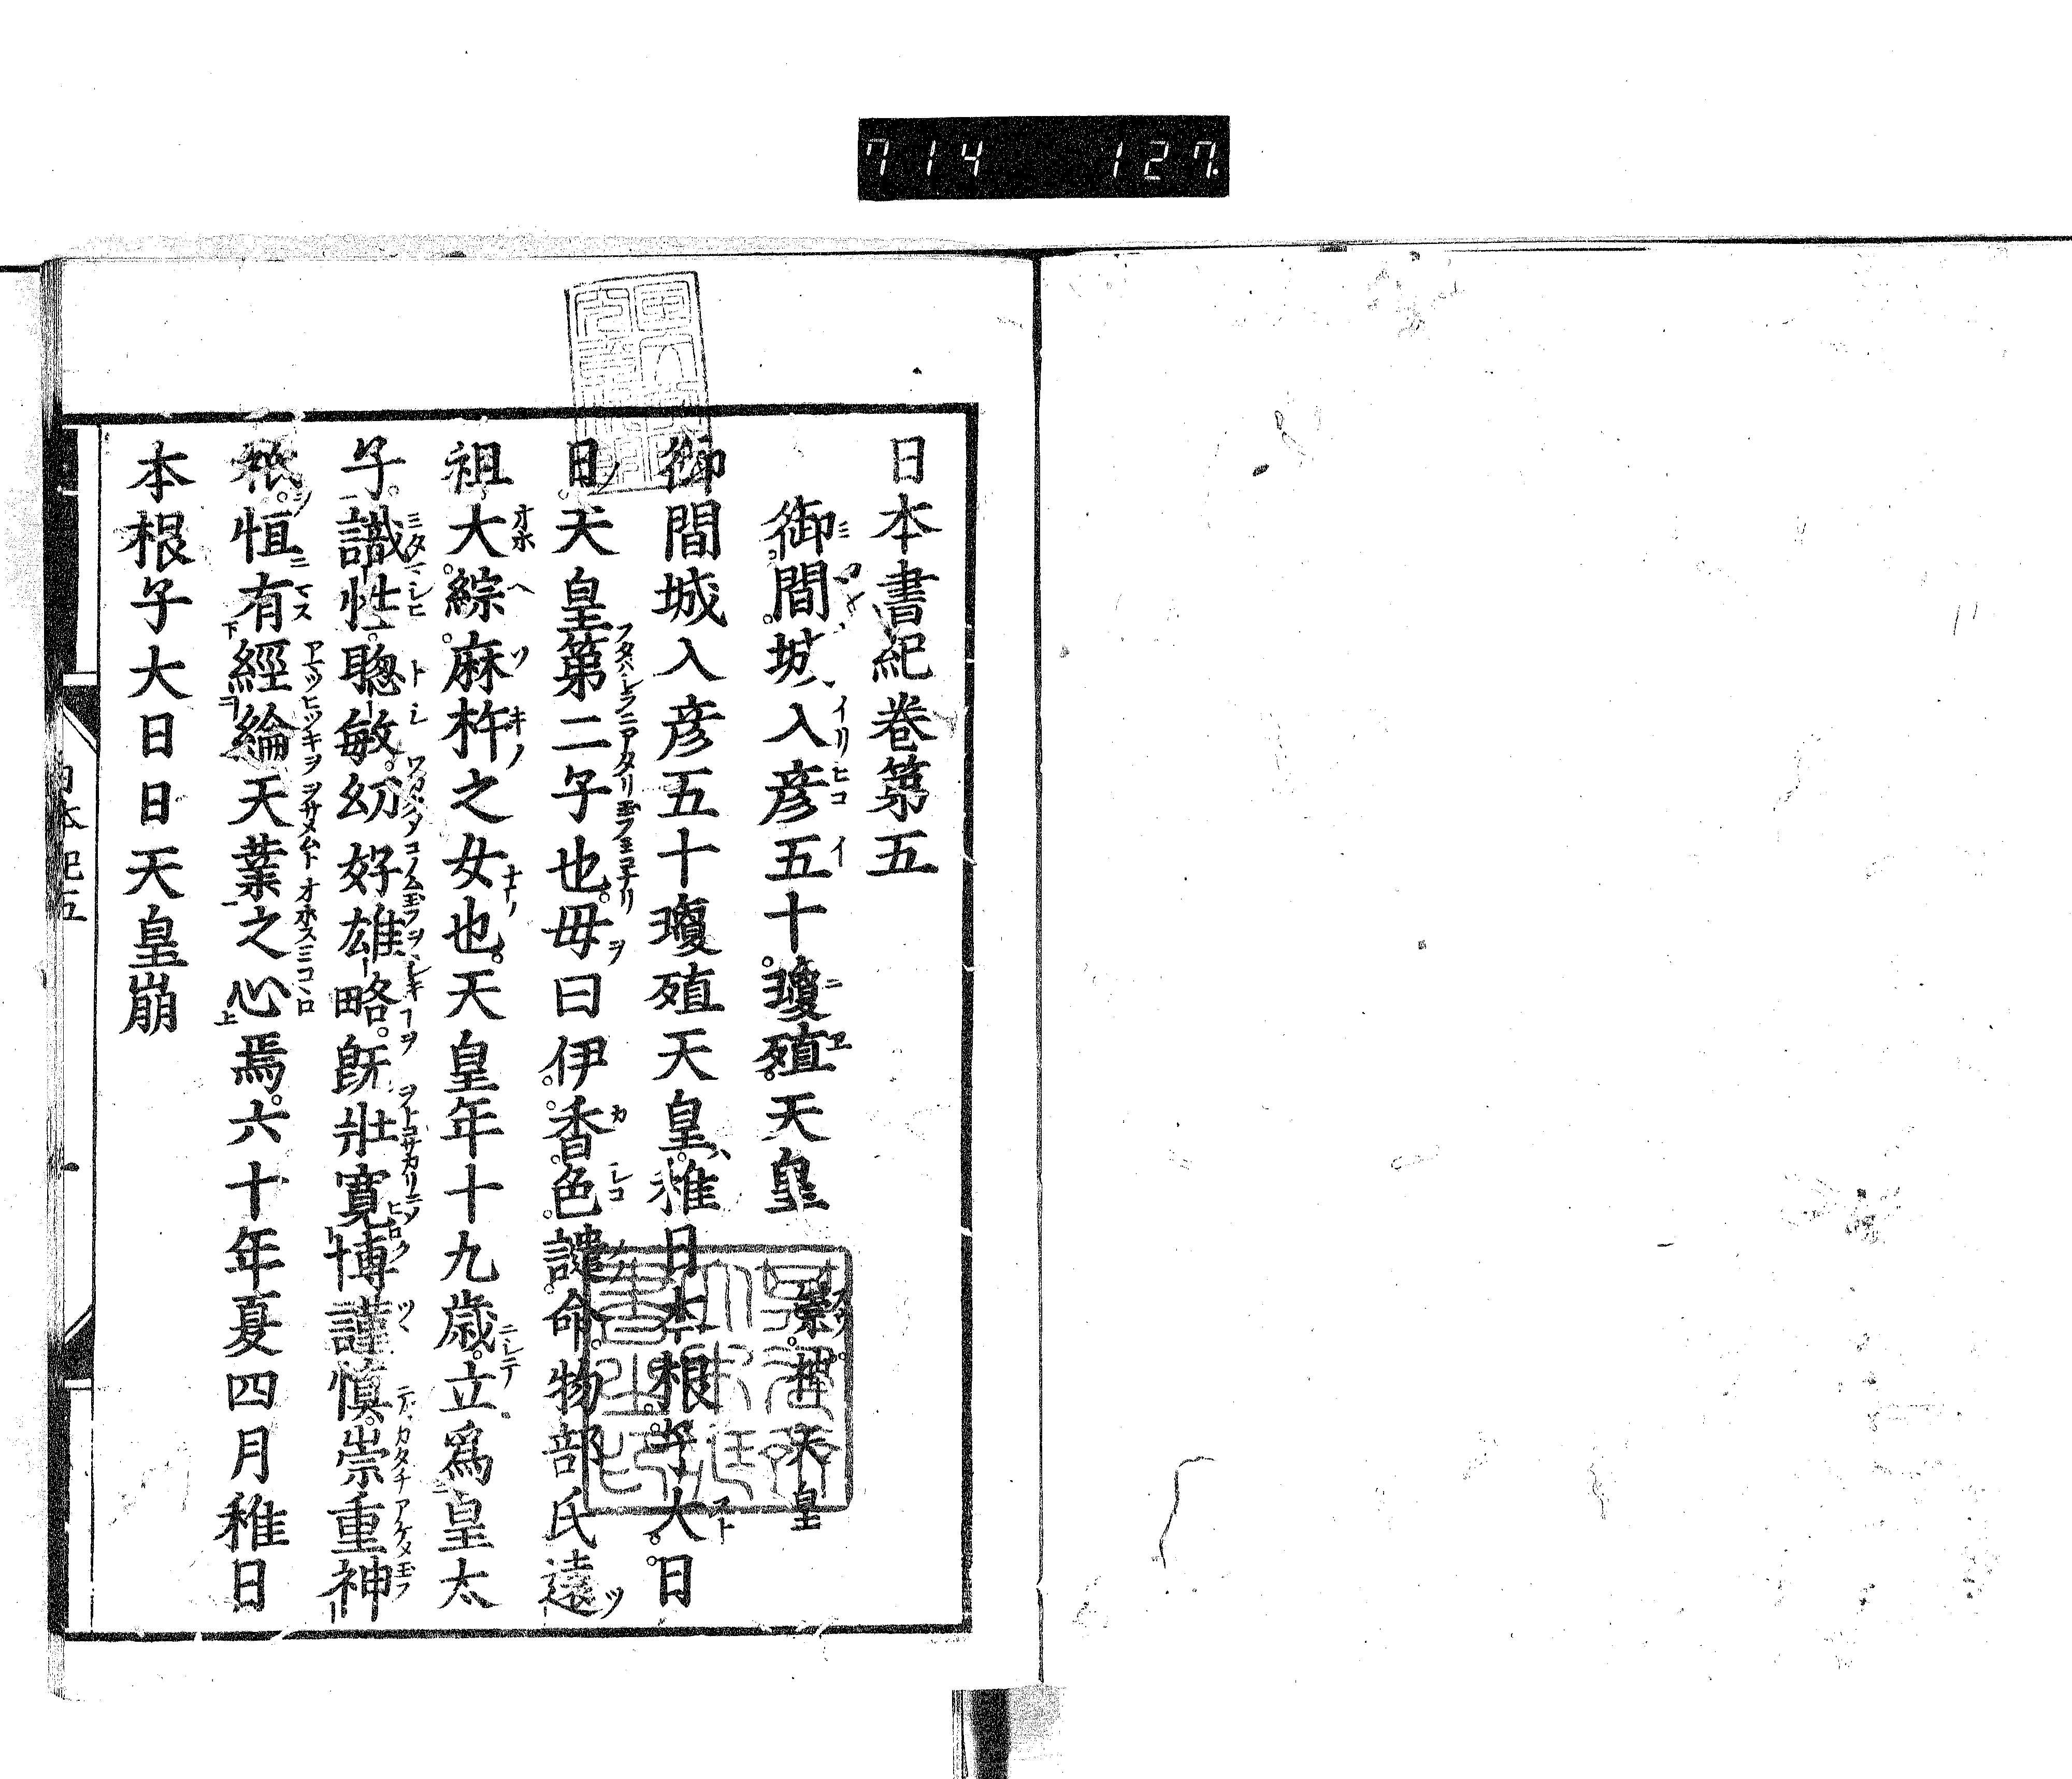 714 127
日本書紀卷第五
御間城入彦五十瓊殖天皇 崇神天皇
御間城入彦五十瓊殖天皇稚日本根子大日
日天皇第二子也母曰伊香色謎命物部氏遠
祖大綜麻杵之女也天皇年十九歳立爲皇太
子識性聰敏幼好雄略旣壯寛博謹愼崇重神
祇恒有經綸天業之心焉六十年夏四月稚日
本根子大日日天皇崩